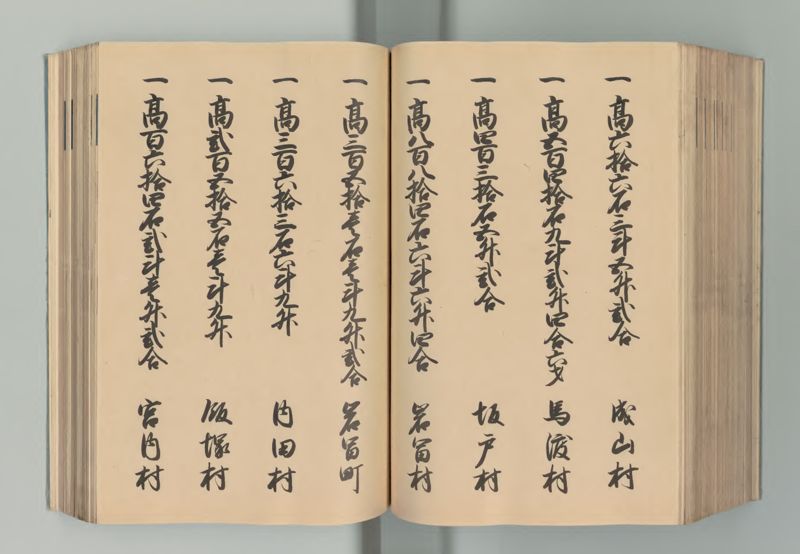 一 高六拾六石三斗五升弐合 成山村
一 高五百四拾石九斗弐升四合六才 馬渡村
一 高四百三拾石五升弐合 坂戸村
一 高八百八拾四石六斗六升四合 岩富村
一 高三百五拾壱石壱斗九升弐合 岩富町
一 高三百六拾三石六斗九升 内田村
一 高弐百五拾五石壱斗九升 飯塚村
一 高百六拾四石弐斗壱升弐合 宮内村